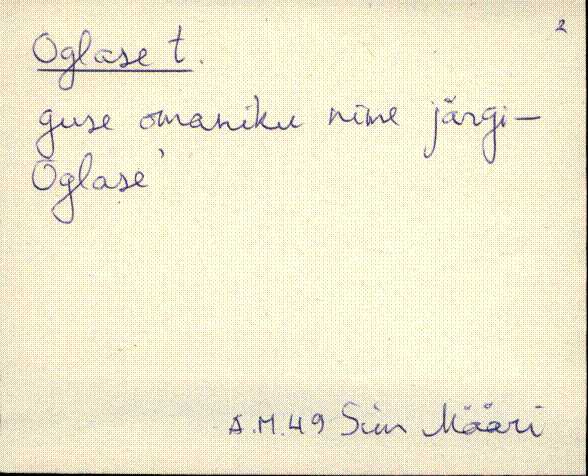 2
Oglase t.
guse omaniku nime järgi –
Oglase'
A.M.49 Siim Määri